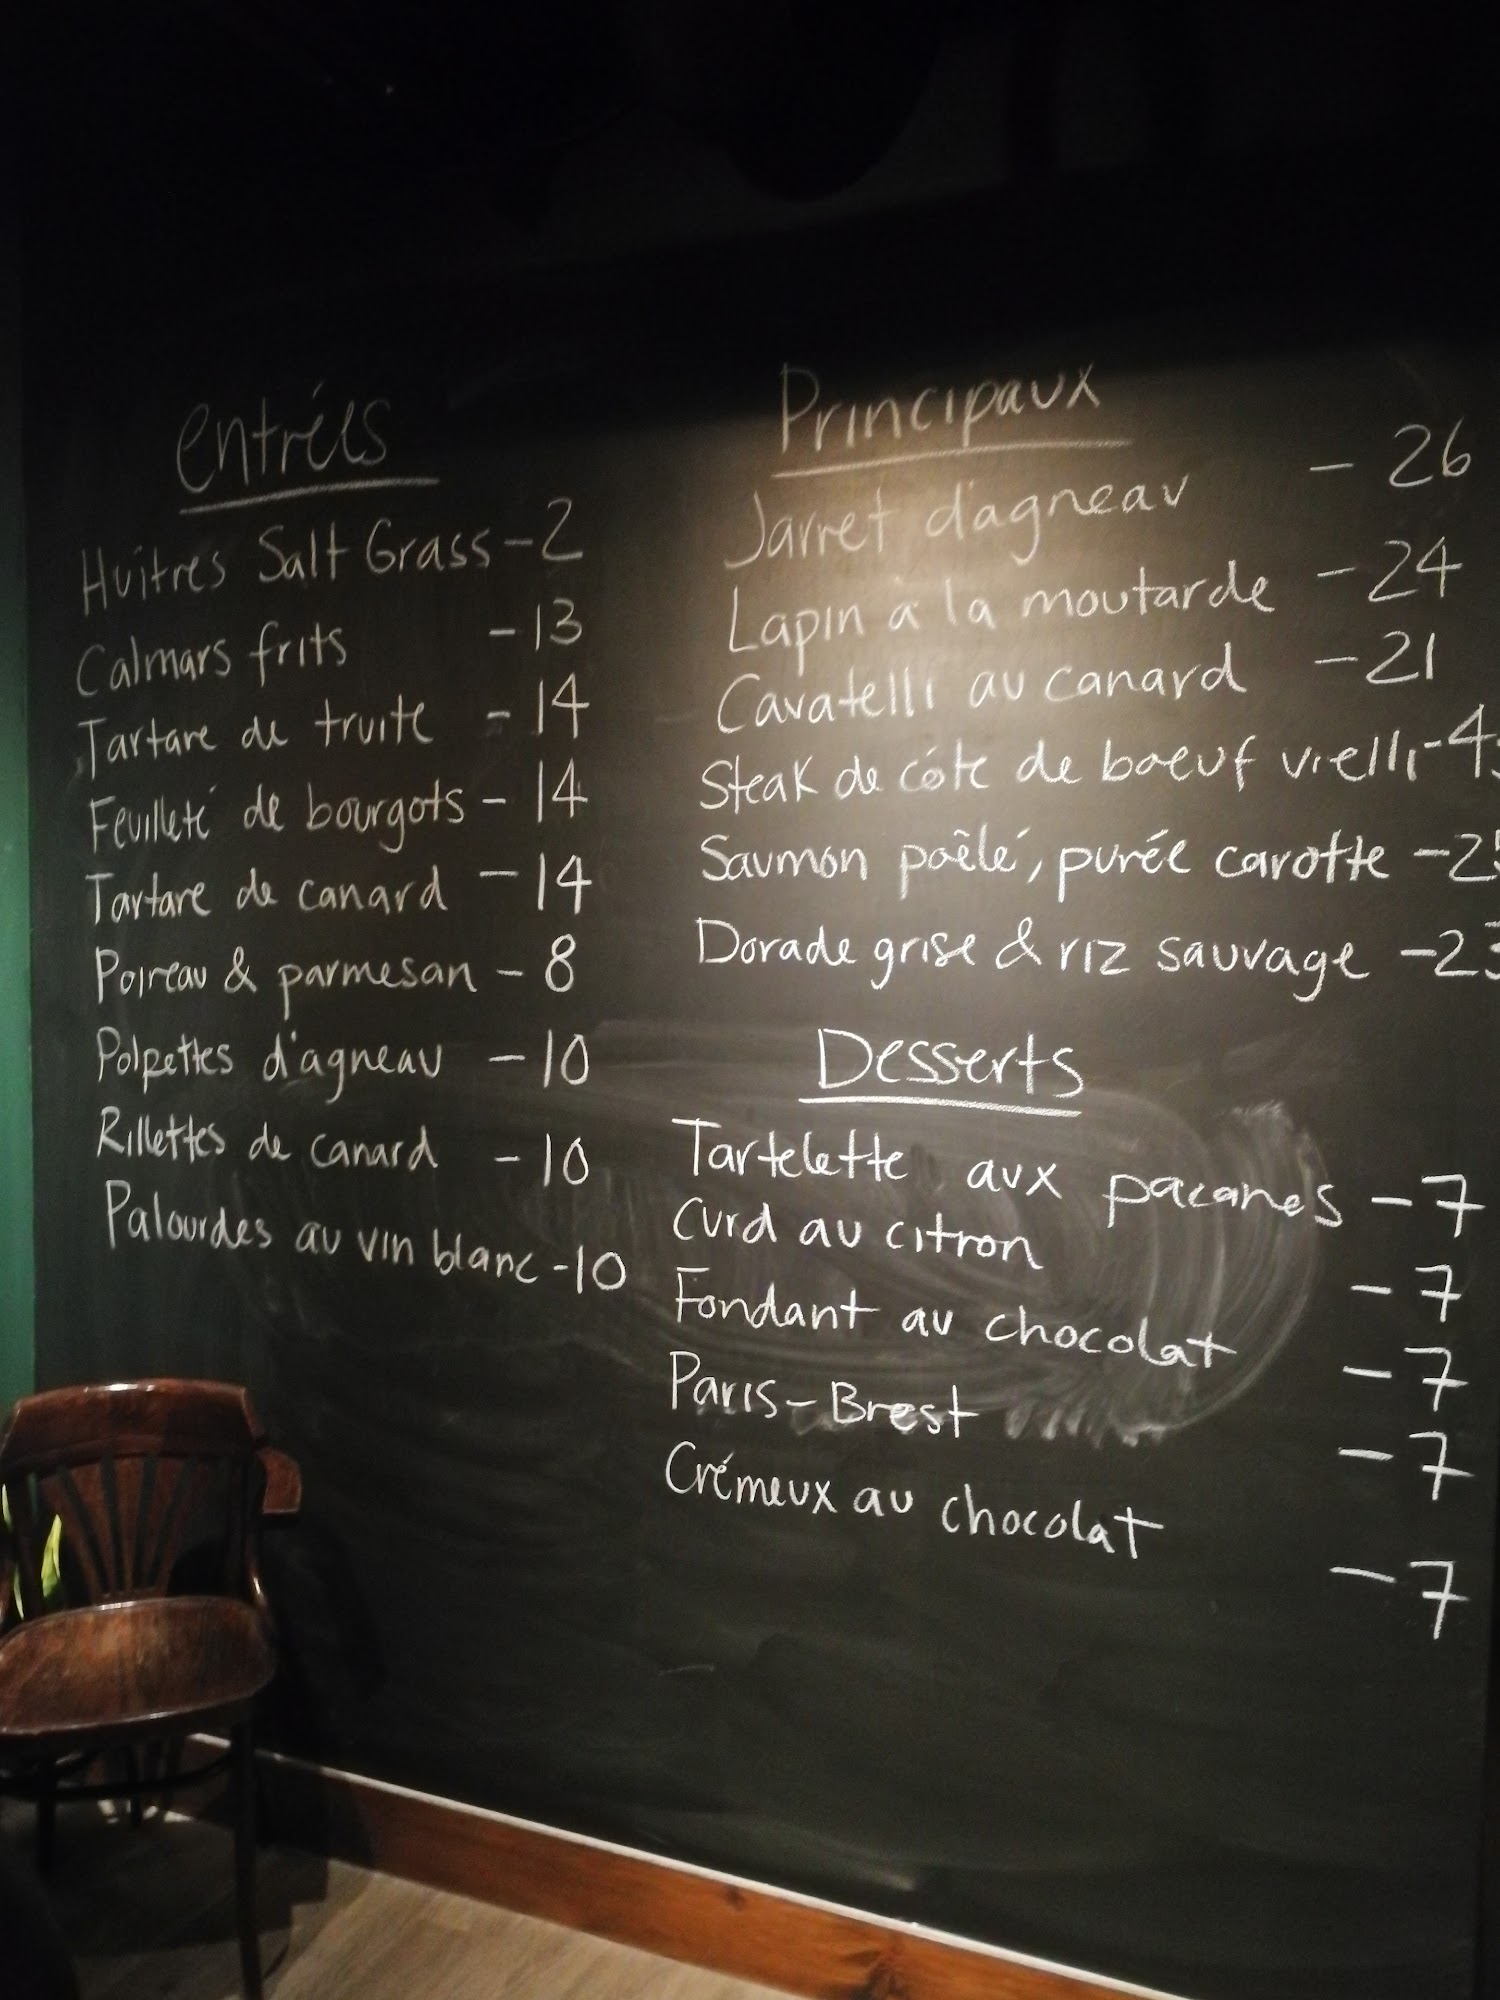 entrées
Huîtres Salt Grass - 2
Calmars frits - 13
Tartare de truite - 14
Feuilleté de bourgots - 14
Tartare de canard - 14
Poireau & parmesan - 8
Polpettes d'agneau - 10
Rillettes de canard - 10
Palourdes au vin blanc - 10
Principaux
Jarret d'agneau - 26
Lapin à la moutarde - 24
Cavatelli au canard - 21
Steak de côte de boeuf vielli - 45
Saumon poêlé, purée carotte - 25
Dorade grise & riz sauvage - 23
Desserts
Tartelette aux pacanes - 7
Curd au citron - 7
Fondant au chocolat - 7
Paris-Brest - 7
Crémeux au chocolat - 7